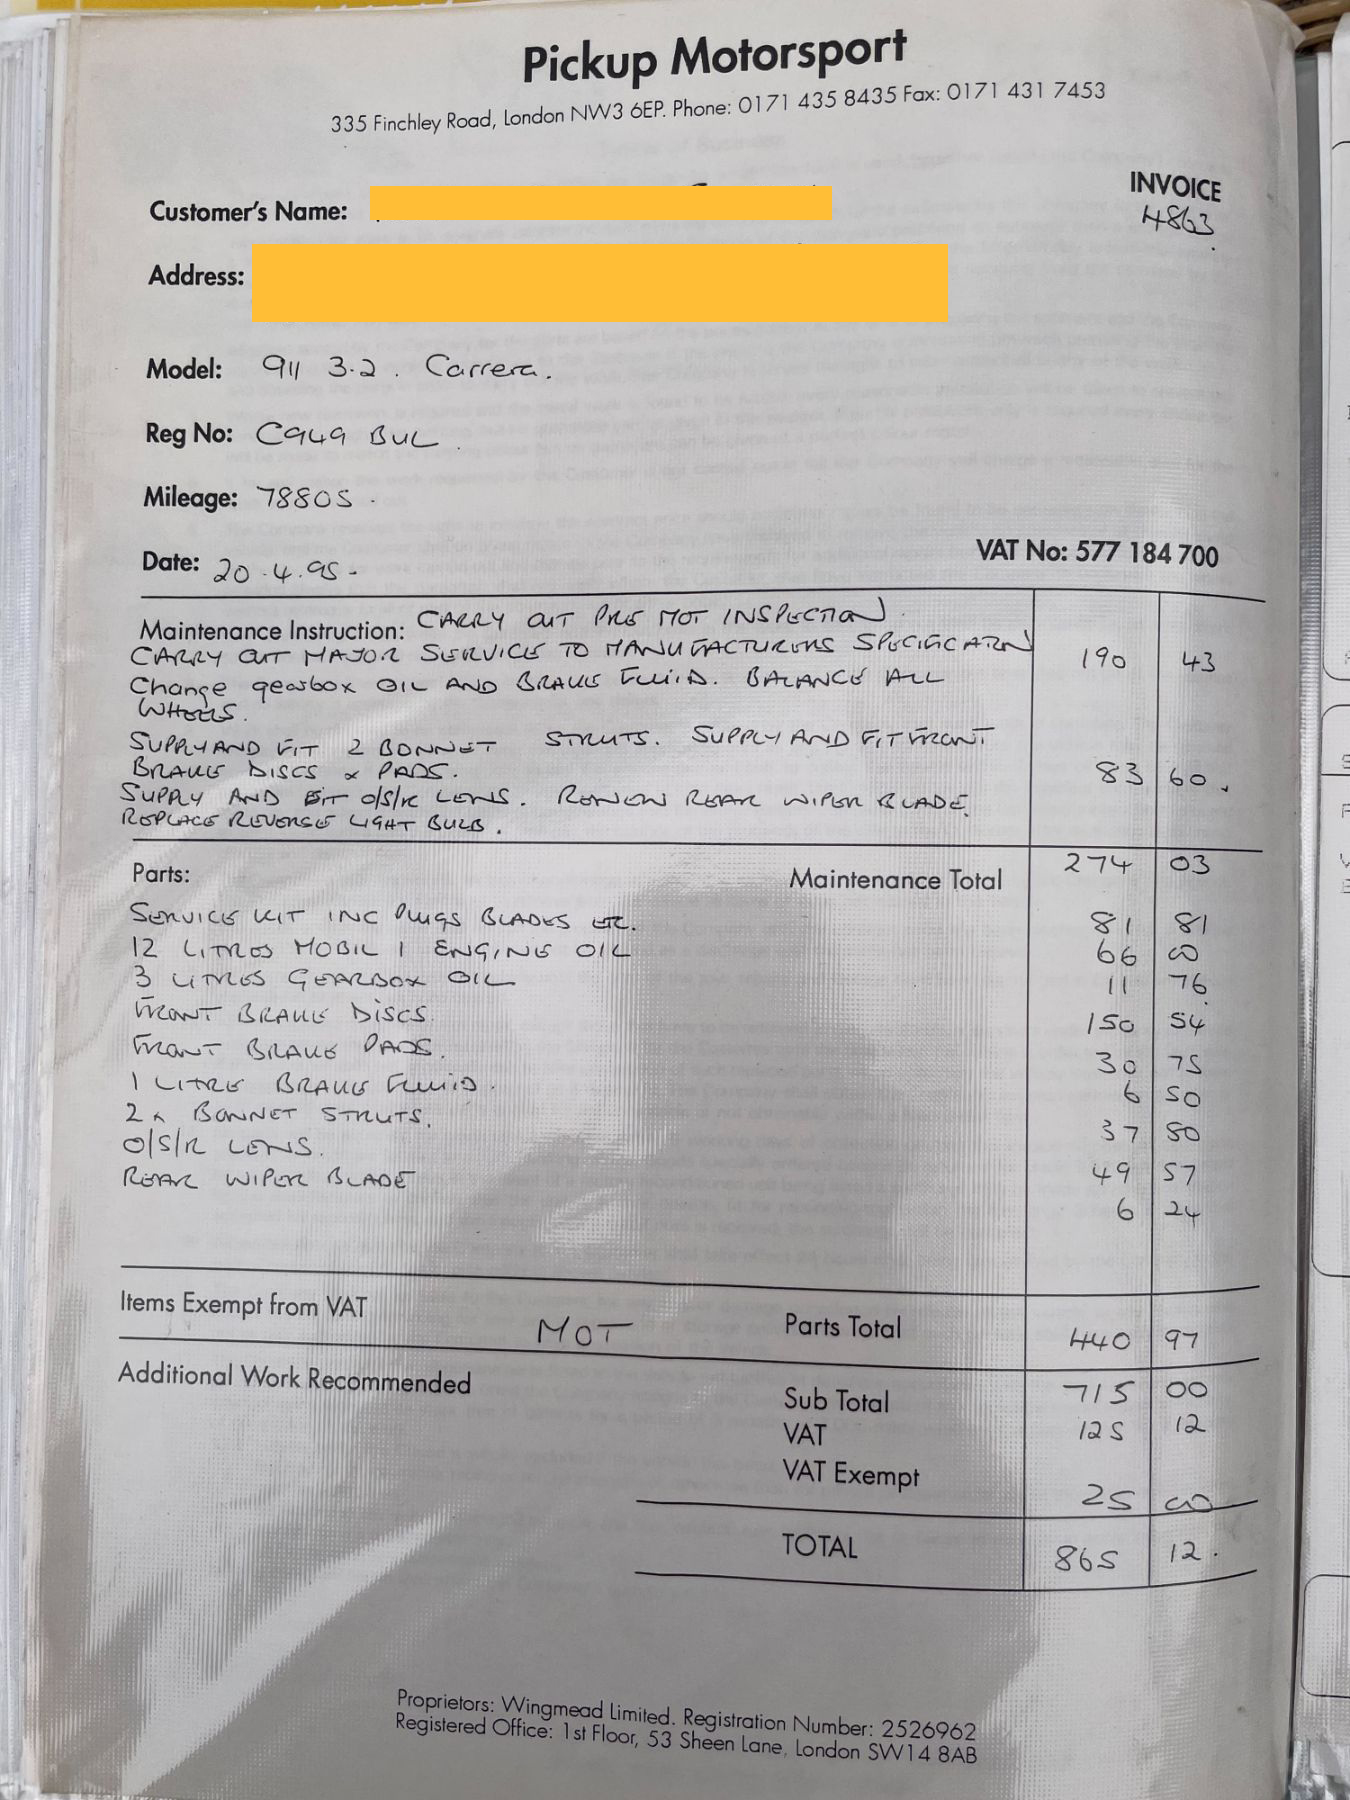 Pickup Motorsport
335 Finchley Road, London NW3 6EP. Phone: 0171 435 8435 Fax: 0171 431 7453
INVOICE
4863
Customer's Name:
Address:
Model: 911 3.2. Carrera.
Reg No: C949 BUL
Mileage: 78805.
Date: 20.4.95-
VAT No: 577 184 700
Maintenance Instruction: CARRY OUT PRE MOT INSPECTION.
CARRY OUT MAJOR SERVICE TO MANUFACTURERS SPECIFICATION 190 43
Change gearbox OIL AND BRAKE FLUID. BALANCE ALL
WHEELS.
SUPPLY AND FIT 2 BONNET STRUTS. SUPPLY AND FIT FRONT
BRAKE DISCS & PADS. 83 60.
SUPPLY AND FIT O/S/R LENS. RENEW REAR WIPER BLADE.
REPLACE REVERSE LIGHT BULB.
Parts: Maintenance Total 274 03
SERVICE KIT INC PLUGS BLADES ETC. 81 81
12 LITRES MOBIL 1 ENGINE OIL 66 00
3 LITRES GEARBOX OIL 11 76
FRONT BRAKE DISCS. 150 54
FRONT BRAKE PADS. 30 75
1 LITRE BRAKE FLUID. 6 50
2 x BONNET STRUTS. 37 80
O/S/R LENS. 49 57
REAR WIPER BLADE 6 24
Items Exempt from VAT MOT Parts Total 440 97
Additional Work Recommended
Sub Total 715 00
VAT 125 12
VAT Exempt 25 00
TOTAL 865 12.
Proprietors: Wingmead Limited. Registration Number: 2526962
Registered Office: 1st Floor, 53 Sheen Lane, London SW14 8AB